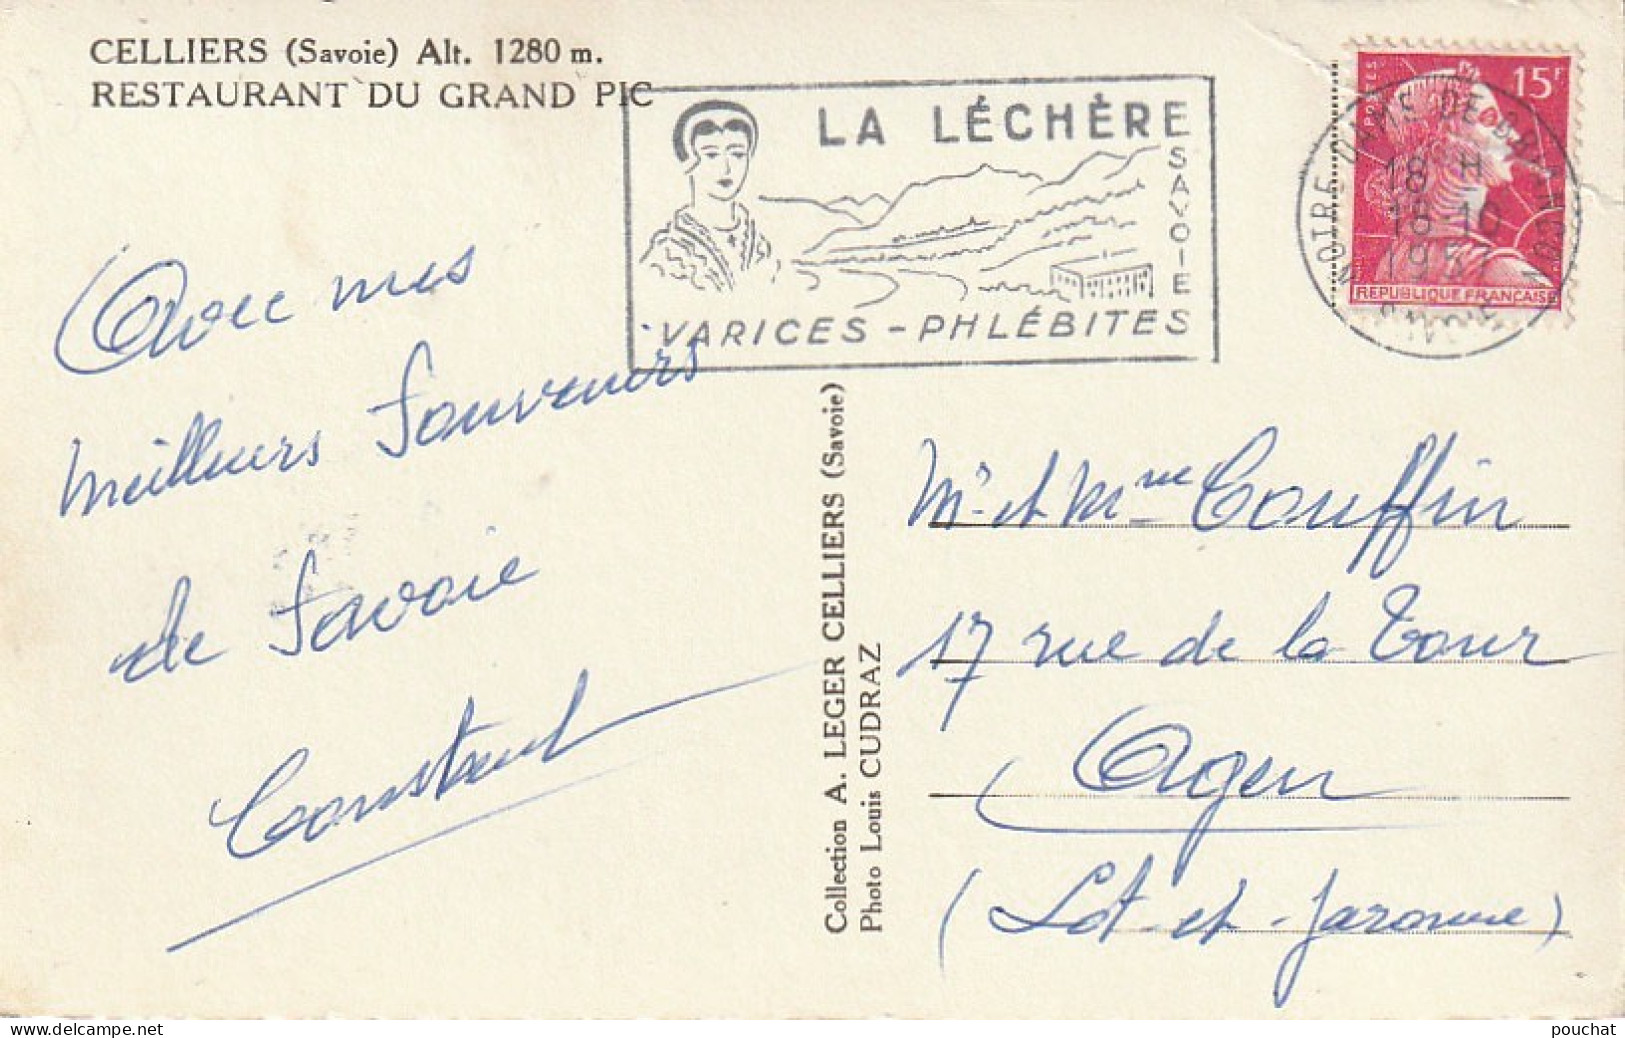 CELLIERS (Savoie) Alt. 1280 m.
RESTAURANT DU GRAND PIC
LA LÉCHÈRE
SAVOIE
VARICES - PHLÉBITES
POSTES
15F
REPUBLIQUE FRANÇAISE
DAME DE BRIANÇON
18 H
18-10
1957
SAVOIE
Avec mes
meilleurs souvenirs
de Savoie
Constant
Collection A. LEGER CELLIERS (Savoie)
Photo Louis CUDRAZ
Mr et Mme Couffin
17 rue de la Tour
Agen
(Lot-et-Garonne)
delcampe.net
pouchat